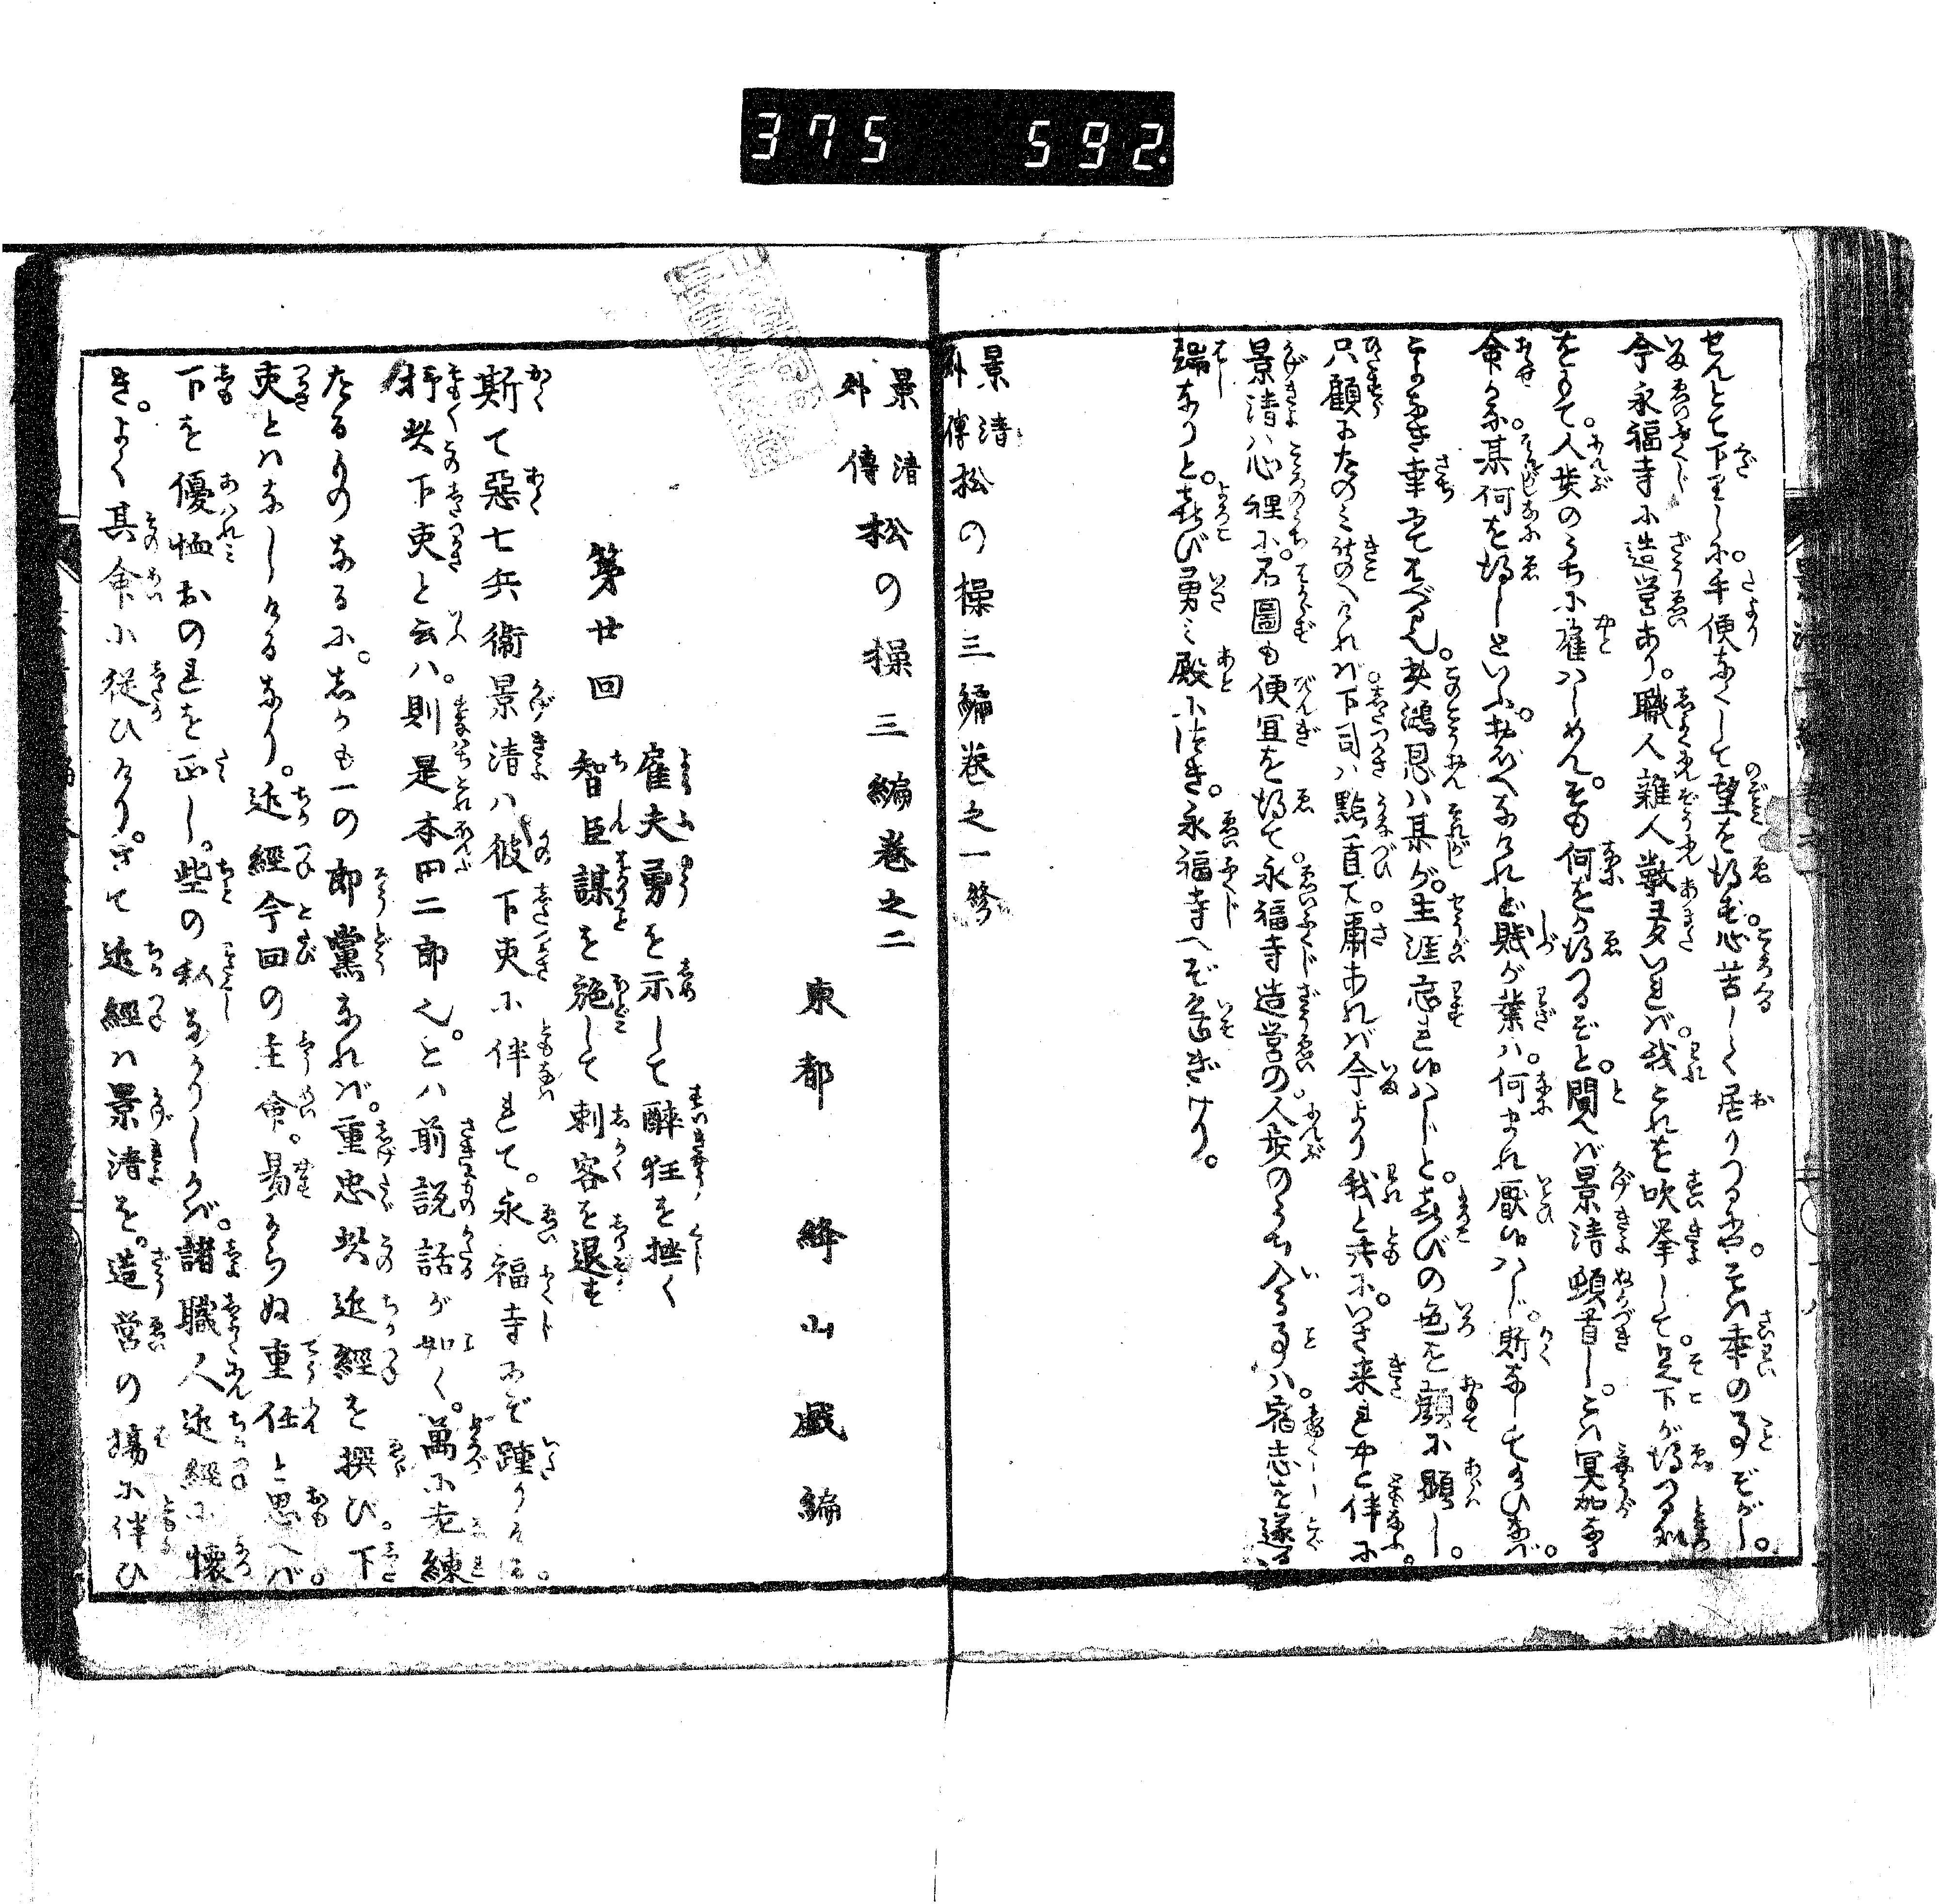 375 592
せんとて下りしに。手便なくして望を得ず。心苦しく居りつるに。そは幸の事ぞかし。
今永福寺に造営あり。職人雑人数多いれば。我これを吹挙して。足下が得つる
をもて。人歩のうちに雇はしめん。そも何をか得つるぞと。問へば景清頓首し。こは冥加なる
命かな。某何を得しといふ。
よき幸にてはべるべし。此鴻恩は某が。生涯忘れ候はじと。喜びの色を顔に顕し。
只顧にたのみ聞へければ。下司は點頭て。爾あれば今より我と共に。いざ来れやと伴に。
景清は心裡に。不圖も便宜を得て。永福寺造営の。人歩のうちへ入る事は。宿志を遂る
端なりと。喜び勇み殿に随き。永福寺へぞ急ぎける。
景清外傳松の操三編巻之一終
景清外傳松の操三編巻之二
東都 絳山戯編
第廿回
雇夫勇を示して醉狂を挫く
智臣謀を施して刺客を退く
斯て惡七兵衞景清は彼下吏に伴れて。永福寺にぞ踵りける。
抑此下吏と云は。則是本田二郎也。とは前説話が如く。萬に老練
たるものなるに。しかも一の郎黨なれば。重忠此近經を撰び。下
吏とはなしけるなり。近經今回の主命。易からぬ重任と思へば。
下を優恤おのれを正し。些の私なかりしかば。諸職人近經に懐
き。よく其命に従ひけり。さて近經は景清を。造営の場に伴ひ